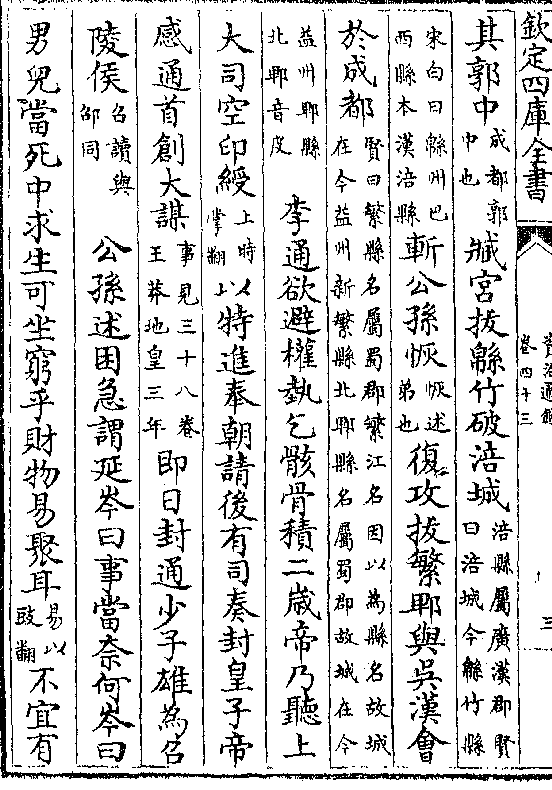 欽定四庫全書
資治通鑑
卷四十三
三
其郭中成都郭中也臧宮拔緜竹破涪城涪縣屬廣漢郡賢曰涪城今緜竹縣
宋白曰緜州巴西縣本漢涪縣斬公孫恢恢述弟也復攻拔繁郫與吳漢會
於成都賢曰繁縣名屬蜀郡繁江名因以為縣名故城在今益州新繁縣北郫縣名屬蜀郡故城在今
益州郫縣北郫音皮 李通欲避權埶乞骸骨積二歲帝乃聽上
大司空印綬上時掌翻以特進奉朝請後有司奏封皇子帝
感通首創大謀事見三十八卷王莽地皇三年即日封通少子雄為召
陵侯召讀與邵同 公孫述困急謂延岑曰事當奈何岑曰
男兒當死中求生可坐窮乎財物易聚耳易以豉翻不宜有